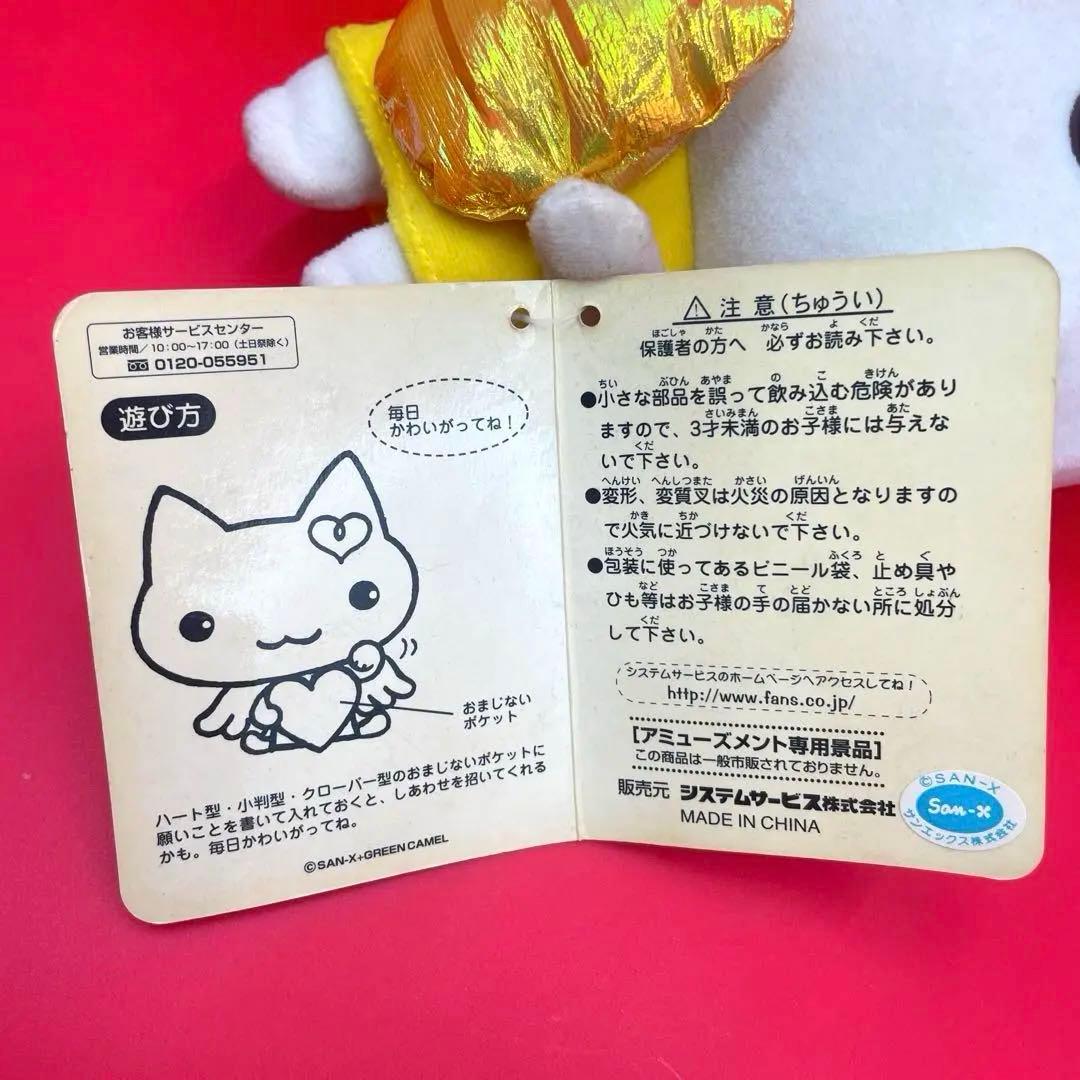 お客様サービスセンター
営業時間／10:00〜17:00（土日祭除く）
0120-055951
遊び方
毎日
かわいがってね！
おまじない
ポケット
ハート型・小判型・クローバー型のおまじないポケットに
願いことを書いて入れておくと、しあわせを招いてくれる
かも。毎日かわいがってね。
©SAN-X+GREEN CAMEL
⚠ 注 意（ちゅうい）
ほごしゃ かた かなら よ くだ
保護者の方へ 必ずお読み下さい。
ちい ぶひん あやま の こ きけん
●小さな部品を誤って飲み込む危険があり
さいみまん こさま あた
ますので、3才未満のお子様には与えな
くだ
いで下さい。
へんけい へんしつまた かさい げんいん
●変形、変質又は火災の原因となりますの
かき ちか くだ
で火気に近づけないで下さい。
ほうそう つか ふくろ と く
●包装に使ってあるビニール袋、止め具や
など こさま て とど ところ しょぶん
ひも等はお子様の手の届かない所に処分
くだ
して下さい。
システムサービスのホームページへアクセスしてね！
http://www.fans.co.jp/
［アミューズメント専用景品］
この商品は一般市販されておりません。
販売元 システムサービス株式会社
MADE IN CHINA
©SAN-X
San-x
サンエックス株式会社